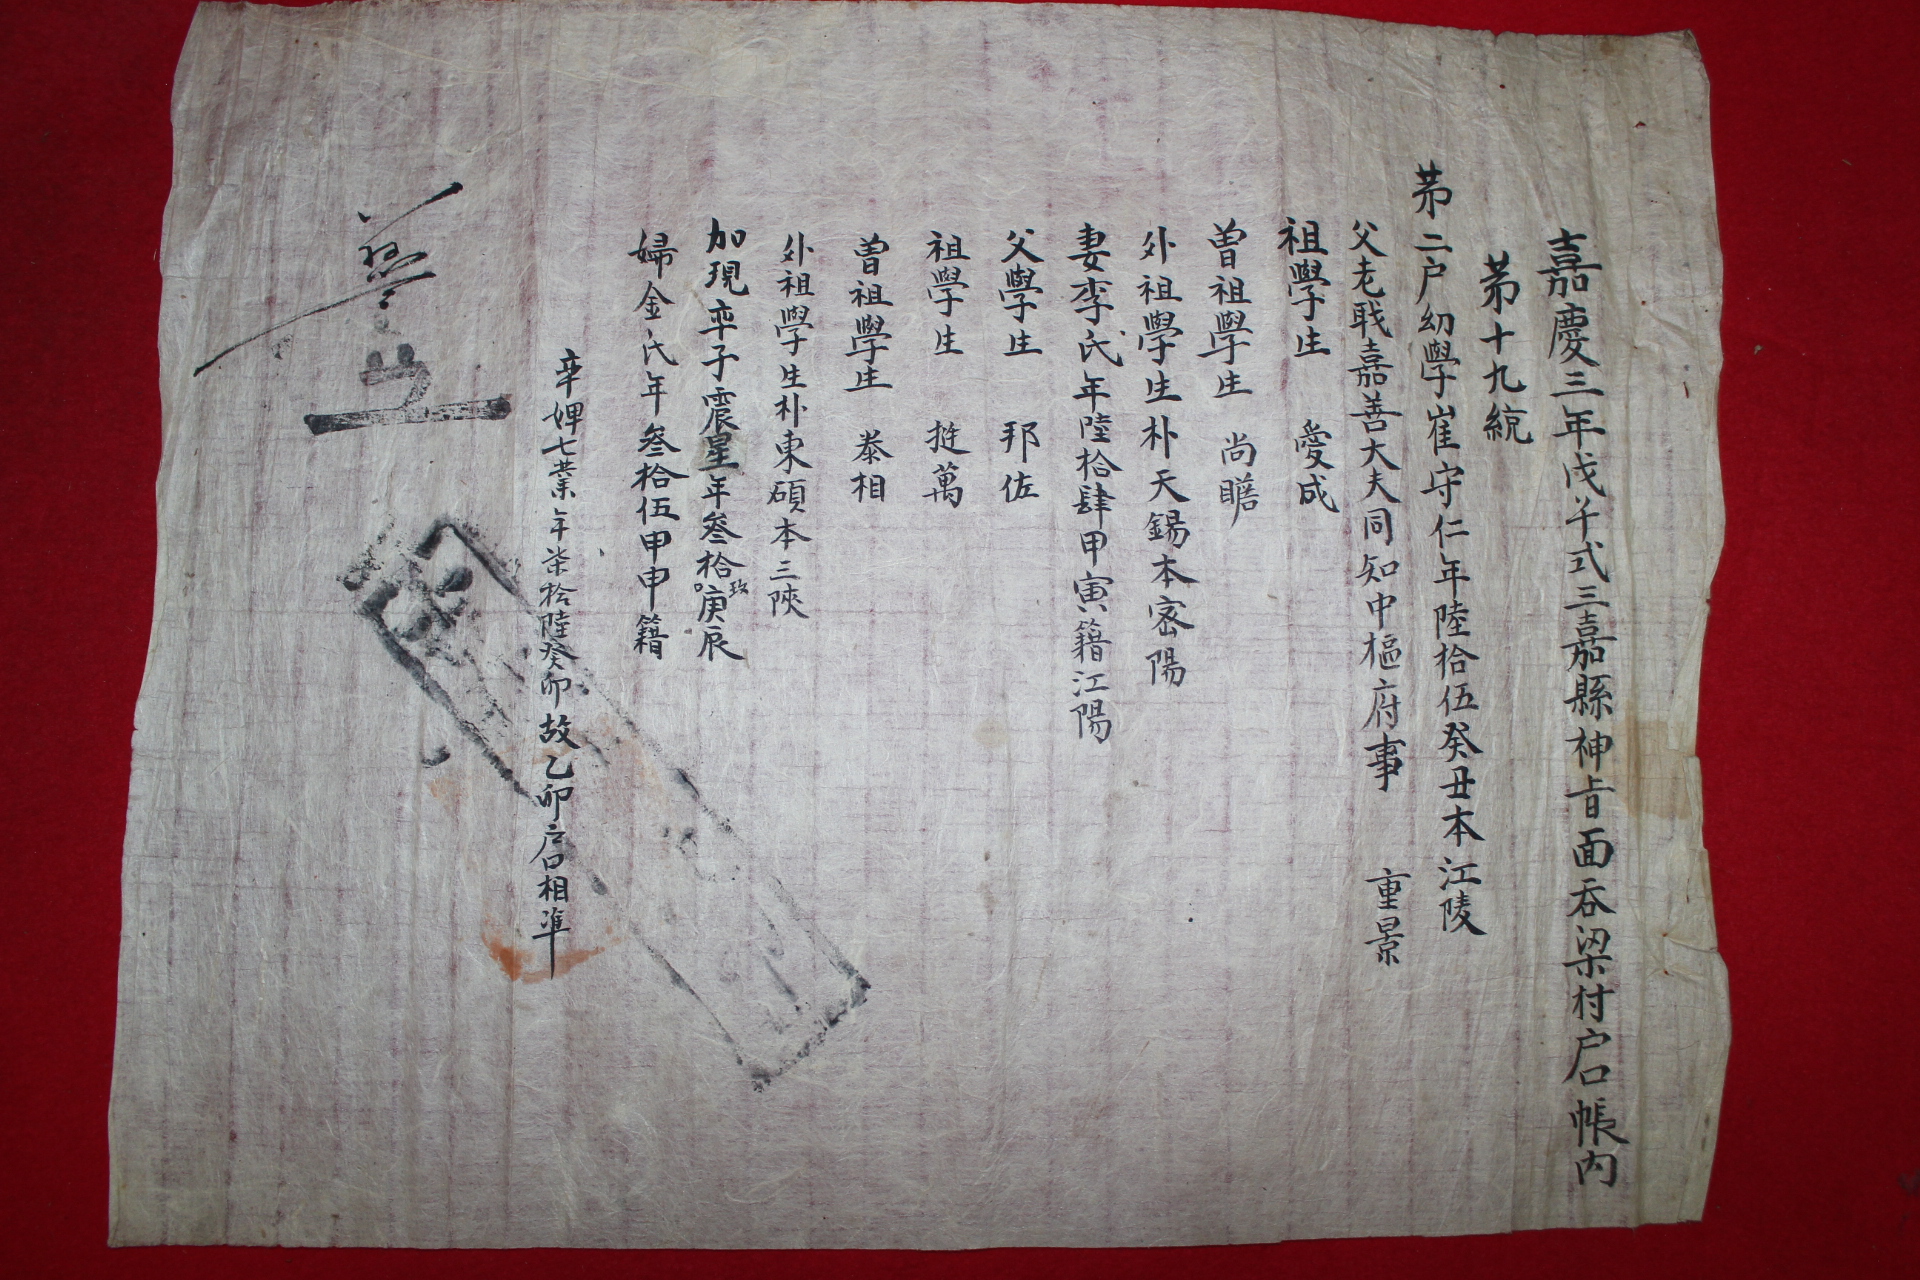 嘉慶三年戊午式三嘉縣神旨面吞梁村户口帳內
苐十九統
苐二户幼學崔守仁年陸拾伍癸丑本江陵
父老職嘉善大夫同知中樞府事 重景
祖學生 愛成
曽祖學生 尚瞻
外祖學生朴天錫本宻陽
妻李氏年陸拾肆甲寅籍江陽
父學生 邦佐
祖學生 挻萬
曽祖學生 泰相
外祖學生朴東碩本三陝
加現率子震星年叄拾玖庚辰
婦金氏年叄拾伍甲申籍
率婢七業年柒拾陸癸卯故乙卯户口相準